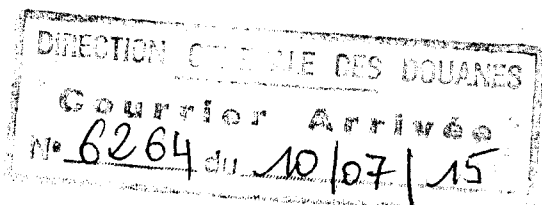 DIRECTION GENERALE DES DOUANES
Courrier Arrivée
N° 6264 du 10/07/15